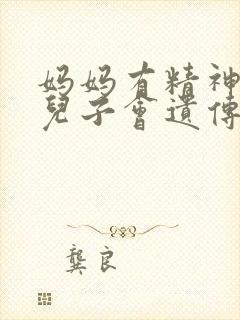 妈妈有精神
兒子會遺傳
龔良